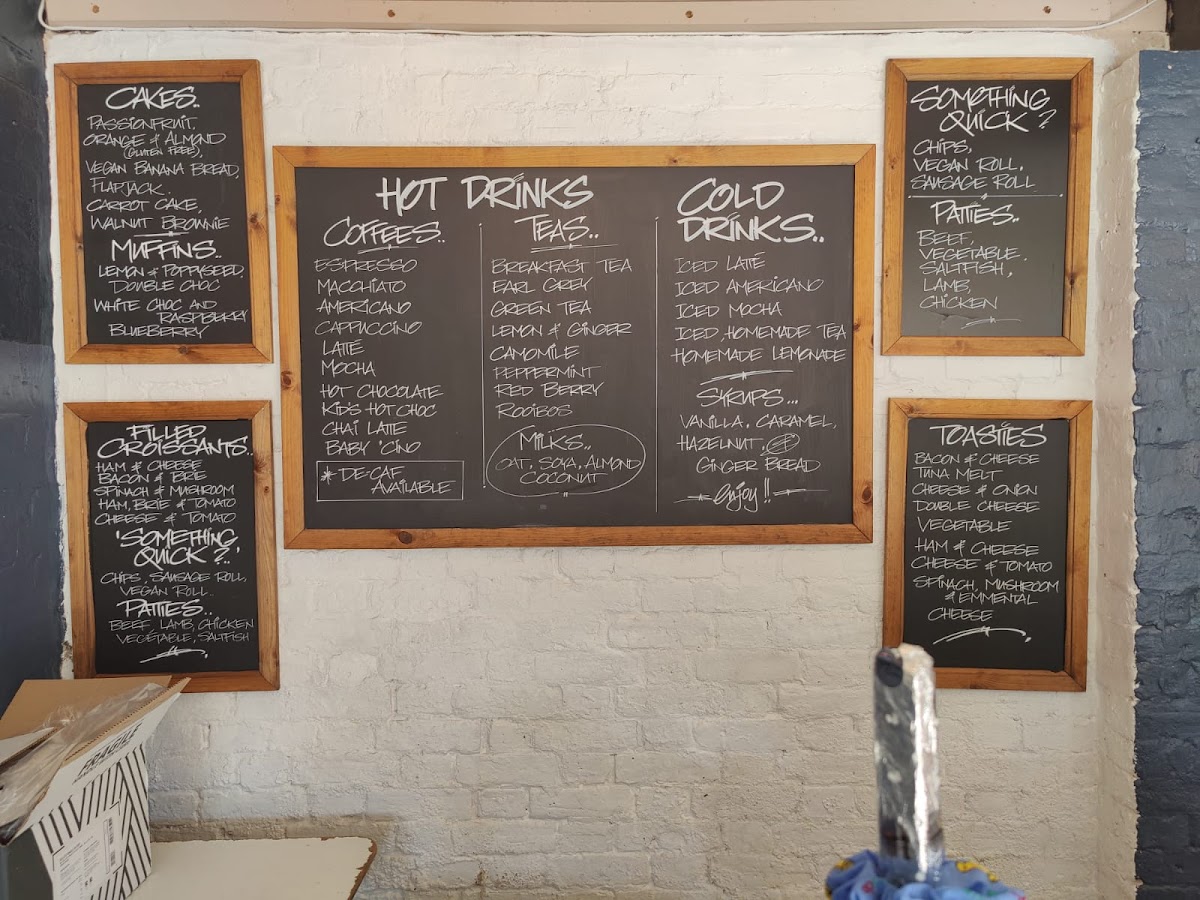 CAKES..
PASSIONFRUIT,
ORANGE & ALMOND
(GLUTEN FREE),
VEGAN BANANA BREAD,
FLAPJACK.
CARROT CAKE,
WALNUT BROWNIE
MUFFINS..
LEMON & POPPYSEED,
DOUBLE CHOC
WHITE CHOC AND
RASPBERRY
BLUEBERRY
FILLED
CROISSANTS..
HAM & CHEESE
BACON & BRIE
SPINACH & MUSHROOM
HAM, BRIE & TOMATO
CHEESE & TOMATO
'SOMETHING
QUICK?..'
CHIPS, SAUSAGE ROLL,
VEGAN ROLL..
PATTIES..
BEEF, LAMB, CHICKEN
VEGETABLE, SALTFISH
HOT DRINKS
COFFEES..
ESPRESSO
MACCHIATO
AMERICANO
CAPPUCCINO
LATTÉ
MOCHA
HOT CHOCOLATE
KID'S HOT CHOC
CHAI LATTE
BABY 'CINO
* DE-CAF
AVAILABLE
TEAS..
BREAKFAST TEA
EARL GREY
GREEN TEA
LEMON & GINGER
CAMOMILE
PEPPERMINT
RED BERRY
ROOIBOS
MILKS..
OAT, SOYA, ALMOND
COCONUT
COLD
DRINKS..
ICED LATTÉ
ICED AMERICANO
ICED MOCHA
ICED, HOMEMADE TEA
HOMEMADE LEMONADE
SYRUPS...
VANILLA, CARAMEL,
HAZELNUT, &
GINGER BREAD
enjoy!!
SOMETHING
QUICK?
CHIPS,
VEGAN ROLL,
SAUSAGE ROLL
PATTIES..
BEEF,
VEGETABLE,
SALTFISH,
LAMB,
CHICKEN
TOASTIES
BACON & CHEESE
TUNA MELT
CHEESE & ONION
DOUBLE CHEESE
VEGETABLE
HAM & CHEESE
CHEESE & TOMATO
SPINACH, MUSHROOM
& EMMENTAL
CHEESE
FRAGILE